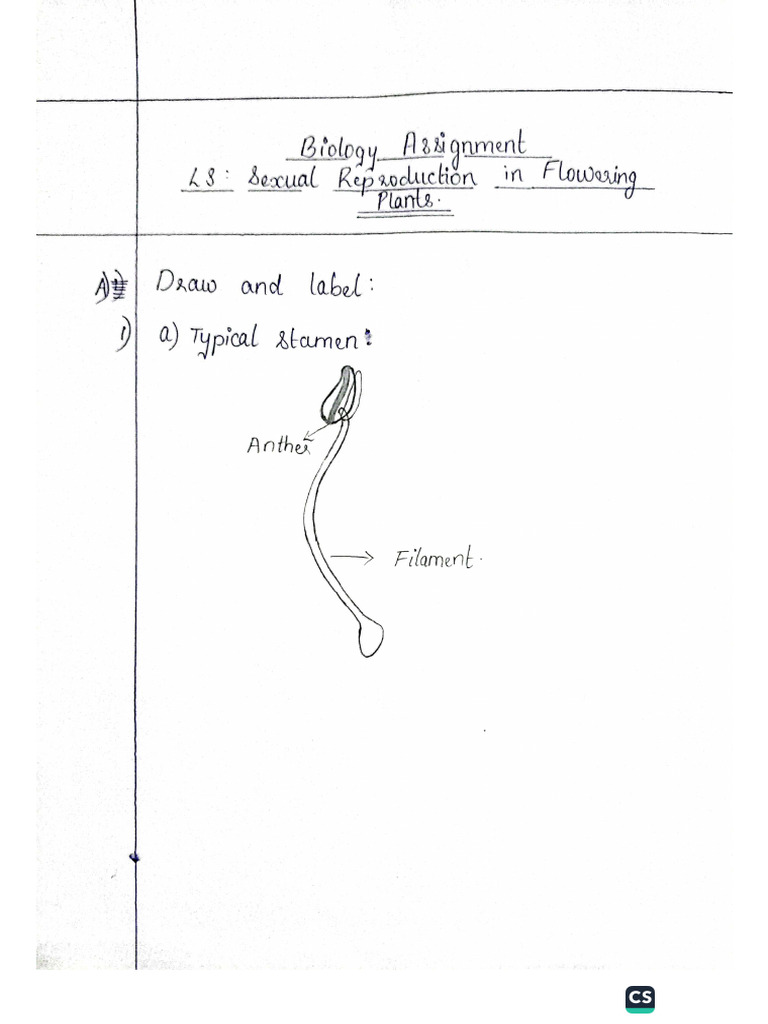 Biology Assignment
LS: Sexual Reproduction in Flowering
Plants.
A) Draw and label:
1) a) Typical stamen:
Anther
Filament.
CS